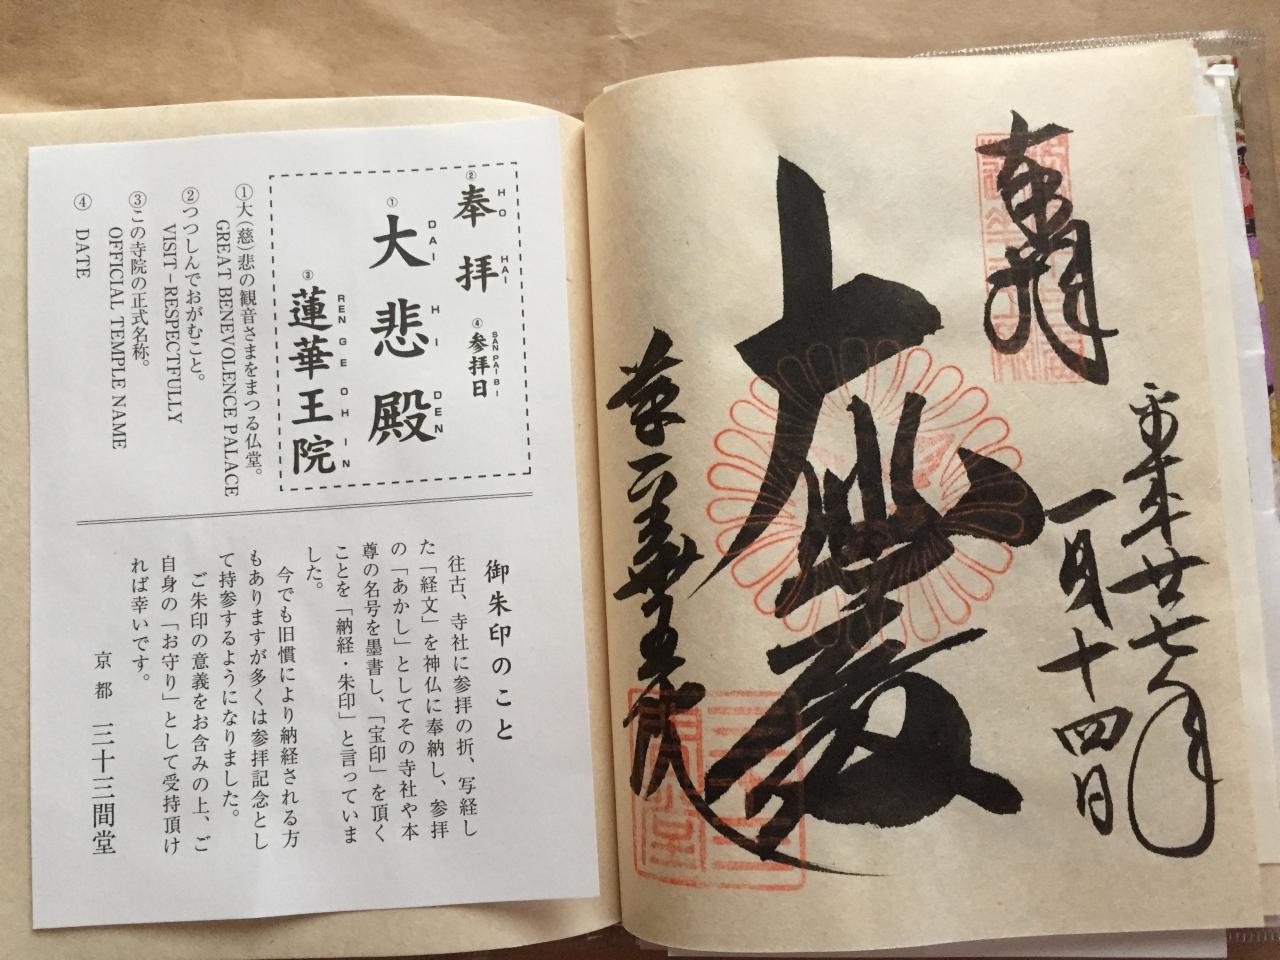 平成廿七年
一月十四日
奉拝
大悲殿
蓮華王院
三十三間堂
HO HAI SAN PAI BI
②奉拝 ④参拝日
DAI HI DEN
①大悲殿
REN GE OH IN
③蓮華王院
①大(慈)悲の観音さまをまつる仏堂。
GREAT BENEVOLENCE PALACE
②つつしんでおがむこと。
VISIT－RESPECTFULLY
③この寺院の正式名称。
OFFICIAL TEMPLE NAME
④ DATE
御朱印のこと
往古、寺社に参拝の折、写経し
た「経文」を神仏に奉納し、参拝
の「あかし」としてその寺社や本
尊の名号を墨書し、「宝印」を頂く
ことを「納経・朱印」と言っていま
した。
今でも旧慣により納経される方
もありますが多くは参拝記念とし
て持参するようになりました。
ご朱印の意義をお含みの上、ご
自身の「お守り」として受持頂け
れば幸いです。
京都 三十三間堂